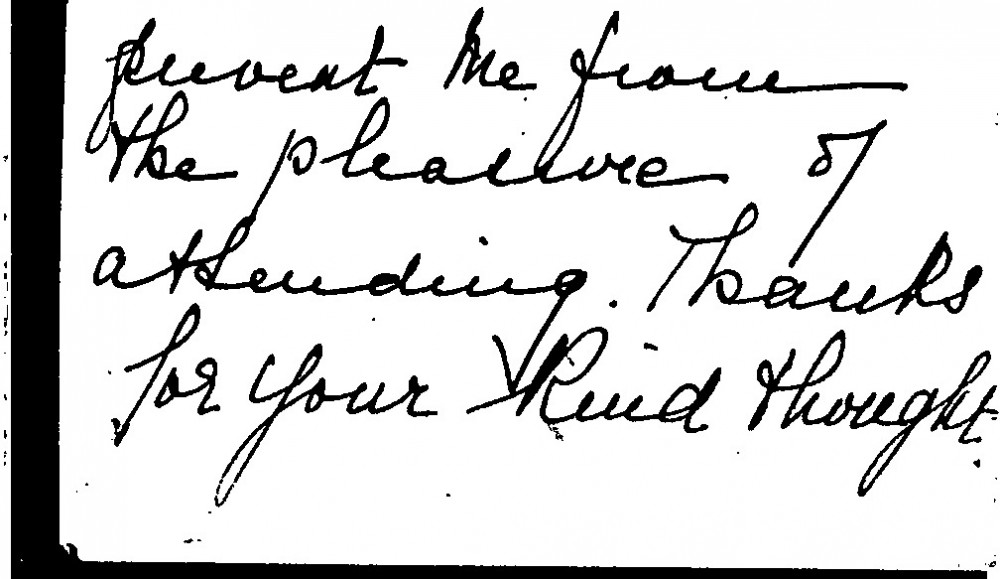 prevent me from
the pleasure of
attending. Thanks
for your kind thought